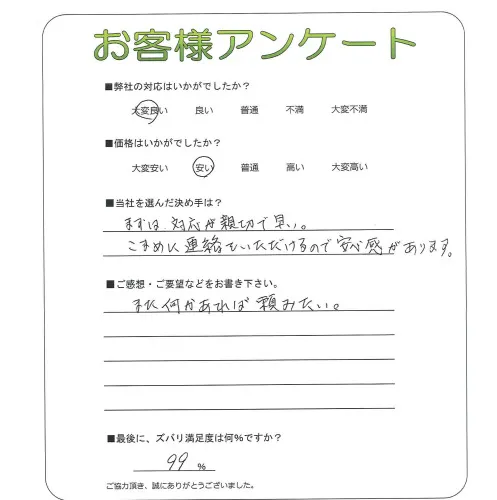 お客様アンケート
■弊社の対応はいかがでしたか？
大変良い 良い 普通 不満 大変不満
■価格はいかがでしたか？
大変安い 安い 普通 高い 大変高い
■当社を選んだ決め手は？
まずは、対応が親切で早い。
こまめに連絡をいただけるので安心感があります。
■ご感想・ご要望などをお書き下さい。
また何かあれば頼みたい。
■最後に、ズバリ満足度は何%ですか？
99 %
ご協力頂き、誠にありがとうございました。